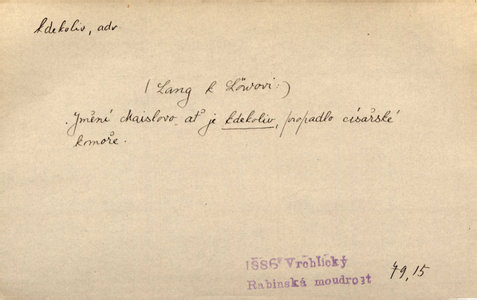 kdekoliv, adv
(Lang k Löwovi:)
Jmění Maislovo, ať je kdekoliv, propadlo císařské
komoře.
1886 Vrchlický
Rabínská moudrost
79,15